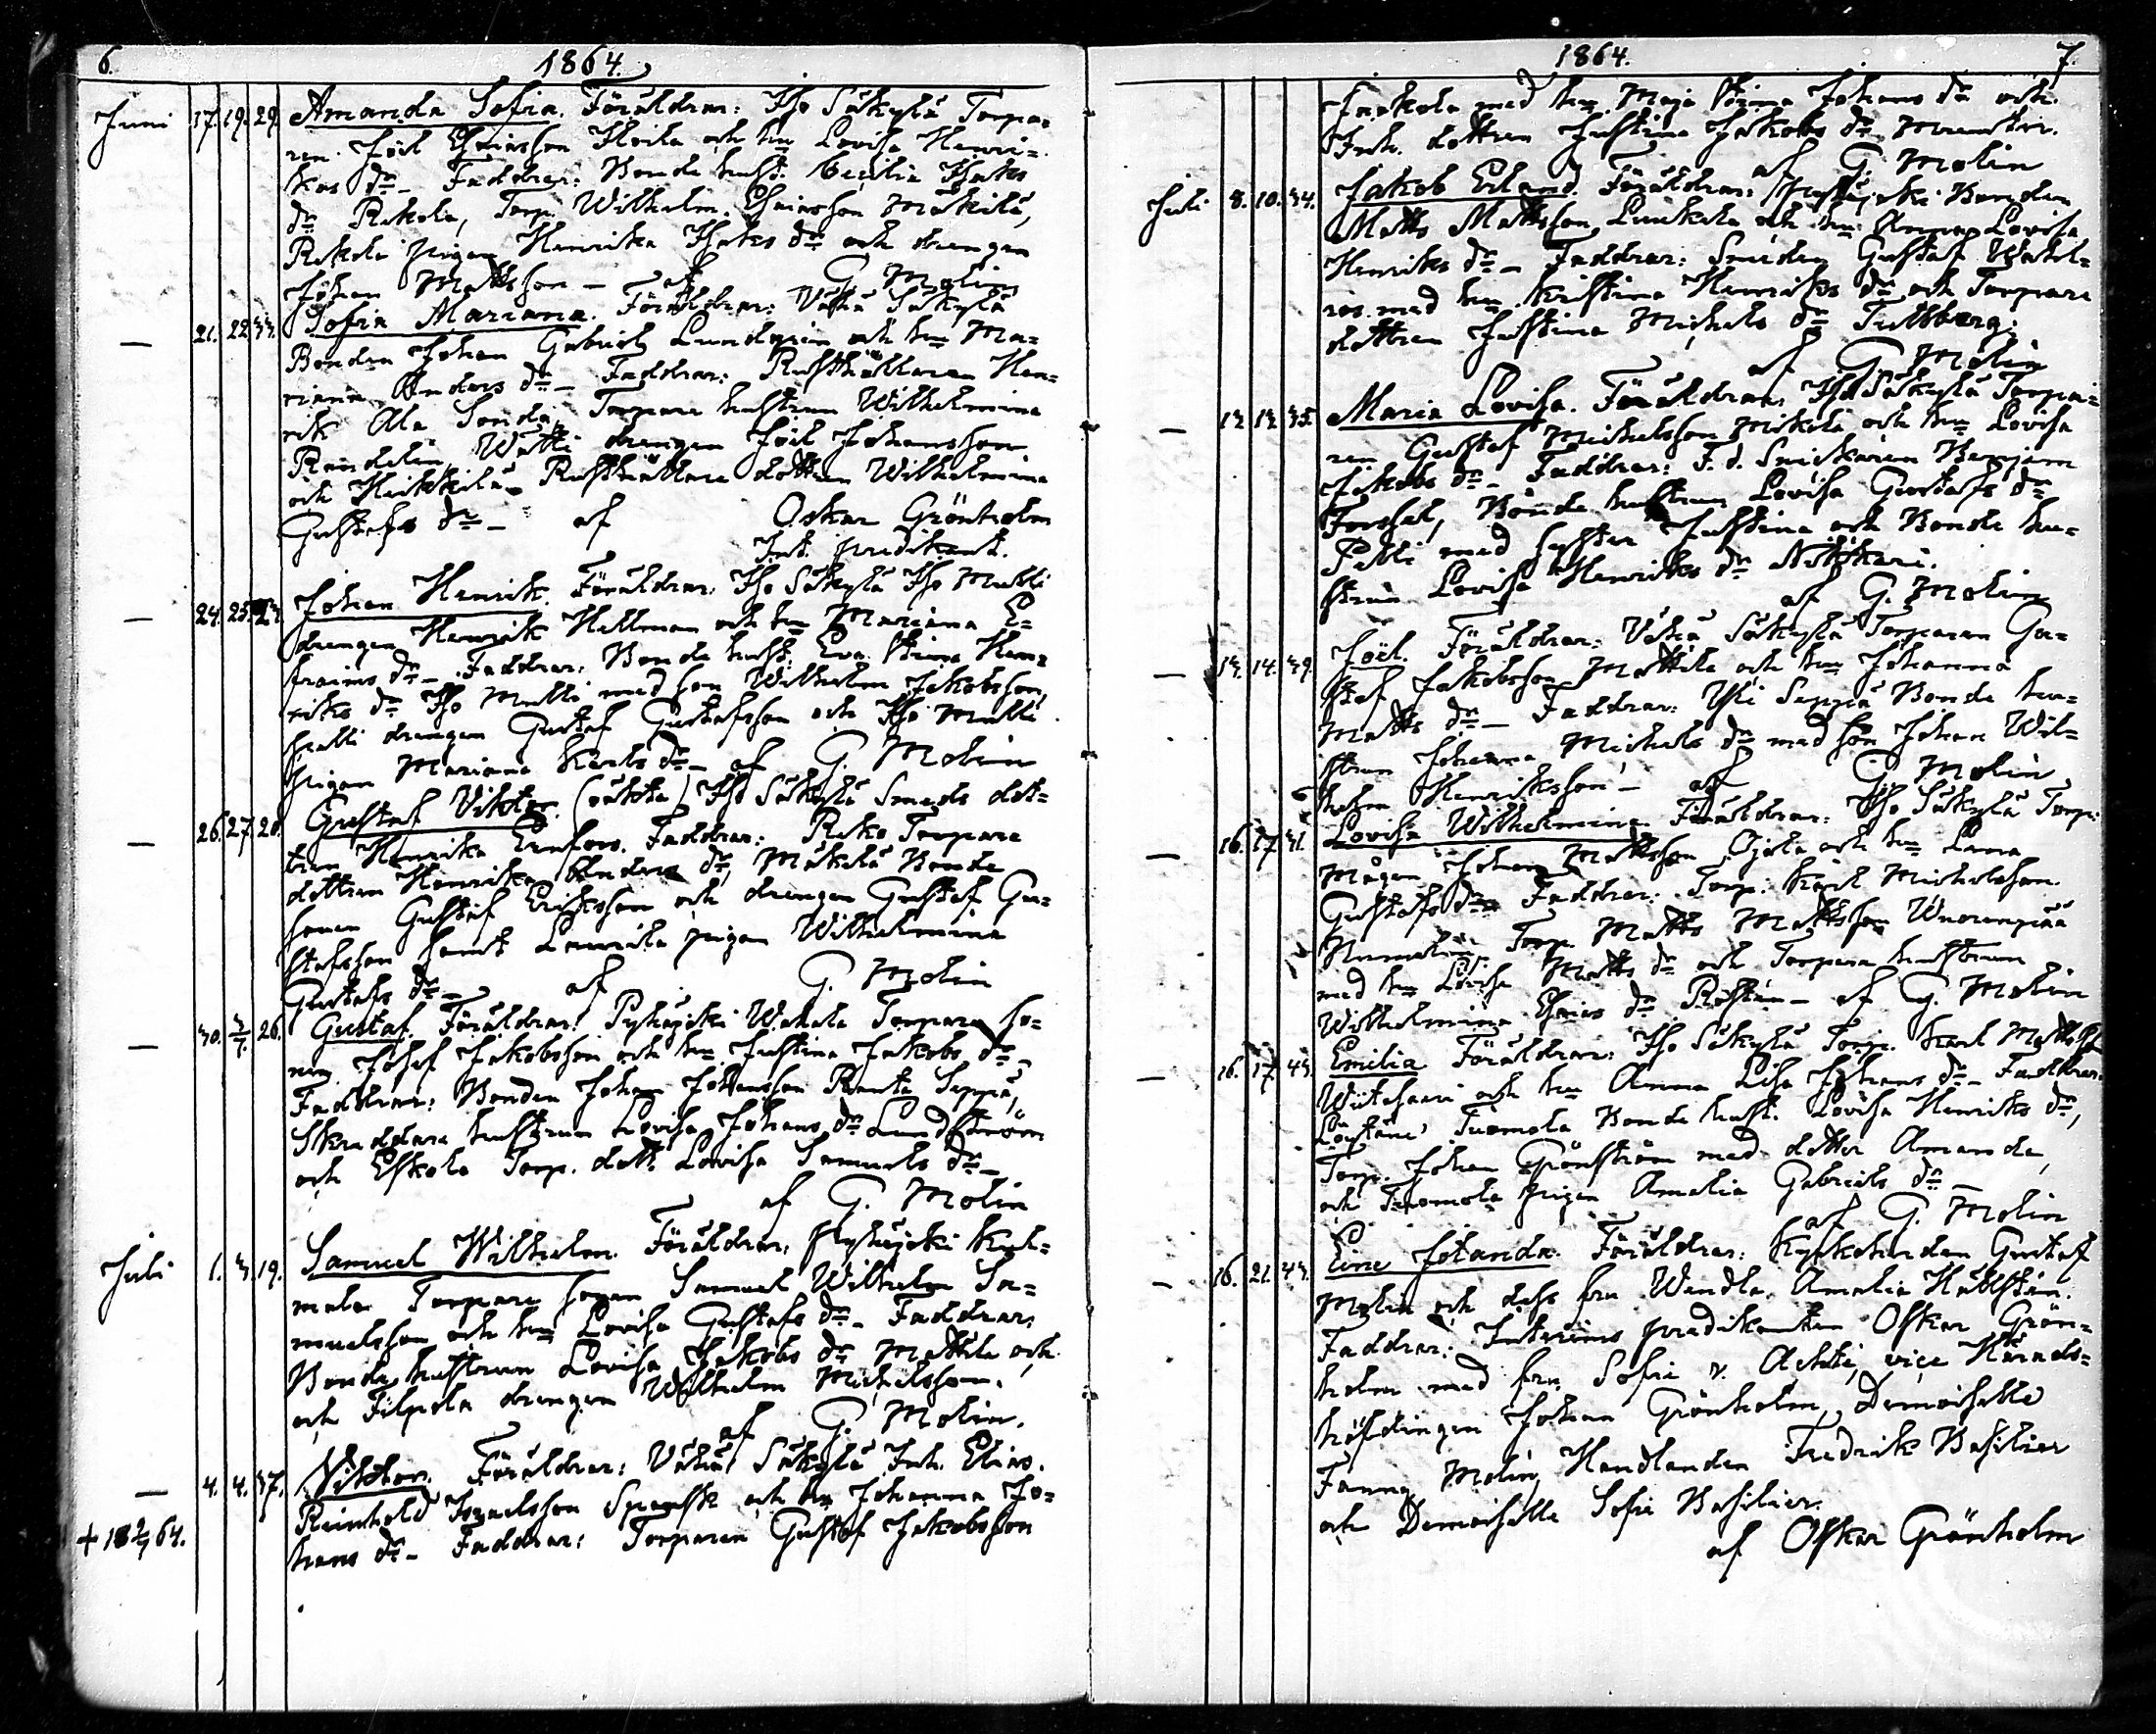 6. 1864.
Juni 17. 19. 29. Amanda Sofia. Föräldrar: Iso Säkylä Torpa-
ren Joel Esaiasson Heila och hu Lovisa Henri-
kas dr - Faddrar: Bonde hust. Cecilia Isaks
dr Rekola, Torp. Wilhelm Esaiasson Mäkilä,
Rekola pigan Henrika Isaks dr och drengen
Johan Mattsson - af G. Molin
— 21. 22. Sofia Mariana. Föräldrar: Vähä Säkylä
Bonden Johan Gabriel Lundgrén och hu Ma-
riana Anders dr - Faddrar: Rusthållaren Hen-
rik Ala Sondi, Torpare hustrun Wilhelmina
Randelin, Watti drengen Joel Johansson
och Heikkilä Rusthållare dottren Wilhelmina
Gustafs dr - af Oskar Grönholm
Int. predikant.
— 24. 25. Johan Henrik. Föräldrar: Iso Säkylä Iso Mulli
drengen Henrik Hellman och hu Mariana E-
fraims dr - Faddrar: Bonde hust. Eva Stina Hen-
riks dr Iso Mulli med son Wilhelm Jakobsson,
drengen Gustaf Gustafsson och Iso Mulli
pigan Mariana Karls dr - af G. Molin
— 26. 27. 20. Gustaf Viktor. (oäkta) Iso Säkylä Smeds dot-
tren Henrika Ernfors. Faddrar: Reko Torpare
dottren Henrika Anders dr, Mäkelä Bonde
sonen Gustaf Eriksson och drengen Gustaf Gu-
stafsson samt Laurila pigan Wilhelmina
Gustafs dr - af G. Molin
— 30. 3/7. 26. Gustaf. Föräldrar: Pyhäjoki Torpare so-
nen Josef Jakobsson och hu Justina Jakobs dr
Faddrar: Bonden Johan Johansson Ranta Seppä,
Skreddare hustrun Lovisa Johans dr Lundström
och Eskola Torp. dott. Lovisa Samuels dr -
af G. Molin
Juli 1. 3. 19. Samuel Wilhelm. Föräldrar: Pyhäjoki Kul-
mala Torpare sonen Samuel Wilhelm Sa-
muelsson och hu Lovisa Gustafs dr - Faddrar:
Bonde hustrun Lovisa Jakobs dr Mattila och
och Filpola drengen Wilhelm Michelsson.
af G. Molin.
— 4. 4. 37. Viktor. Föräldrar: Vähä Säkylä Inh. Elias
+ 18 2/9 64. Reinhold Israelsson och hu Johanna Jo-
hans dr - Faddrar: Torparen Gustaf Jakobsson
1864. 7.
med hu Maja Stina Johans dr och
Inh. dottren Justina Jakobs dr
af G. Molin
Juli 8. 10. 34. Jakob Erland. Föräldrar: Pyhäjoki Bonden
Matts Mattsson Luukola och hu Anna Lovisa
Henriks dr - Faddrar: Smeden Gustaf Wahl-
ros med hu Kristina Henriks dr och Torpare
dottren Justina Michels dr Tullberg.
af G. Molin
— 12. 13. 35. Maria Lovisa. Föräldrar: Iso Säkylä Torpa-
ren Gustaf Michelsson Mikola och hu Lovisa
Jakobs dr - Faddrar: F. d. Snickaren Benjam
Forssel, Bonde hustrun Lovisa Gustafs dr
Pelli med syster Justina och Bonde hu-
strun Lovisa Henriks dr
af G. Molin
— 13. 14. 39. Joel. Föräldrar: Vähä Säkylä Torparen Gu-
staf Jakobsson Mattila och hu Johanna
Matts dr - Faddrar: Yli Seppä Bonde hu-
strun Johanna Michels dr med son Johan Wil-
helm Henriksson - af G. Molin
— 16. 17. 41. Lovisa Wilhelmina. Föräldrar: Iso Säkylä Torp.
mågen Johan Mattsson Ojala och hu Lena
Gustafs dr Faddrar: Torp. Karl Michelsson
Torp. Matts Mattsson Vuorenpää
med hu Lovisa Matts dr och Torpare hustrun
Wilhelmina Esaias dr - af G. Molin
— 16. 17. 43. Emilia Föräldrar: Iso Säkylä Torp. Karl Mattsson
Wiitasaari och hu Anna Lisa Johans dr - Faddrar:
Löytäne Tuomola Bonde hust. Lovisa Henriks dr,
Torp. Johan Grönström med dotter Amanda,
och Tuomola pigan Amalia Gabriels dr -
af G. Molin
— 16. 21. 43. Eine Jolanda. Föräldrar: Kyrkoherden Gustaf
Molin och dess fru Wendla Amalia Hällstén.
Faddrar: Interims predikanten Oskar Grön-
holm med fru Sofie v. Achté, vice Härads-
höfdingen Johan Grönholm, Demoiselle
Fanny Molin, Handlanden Fredrik Basilier
och Demoiselle Sofie Basilier.
af Oskar Grönholm